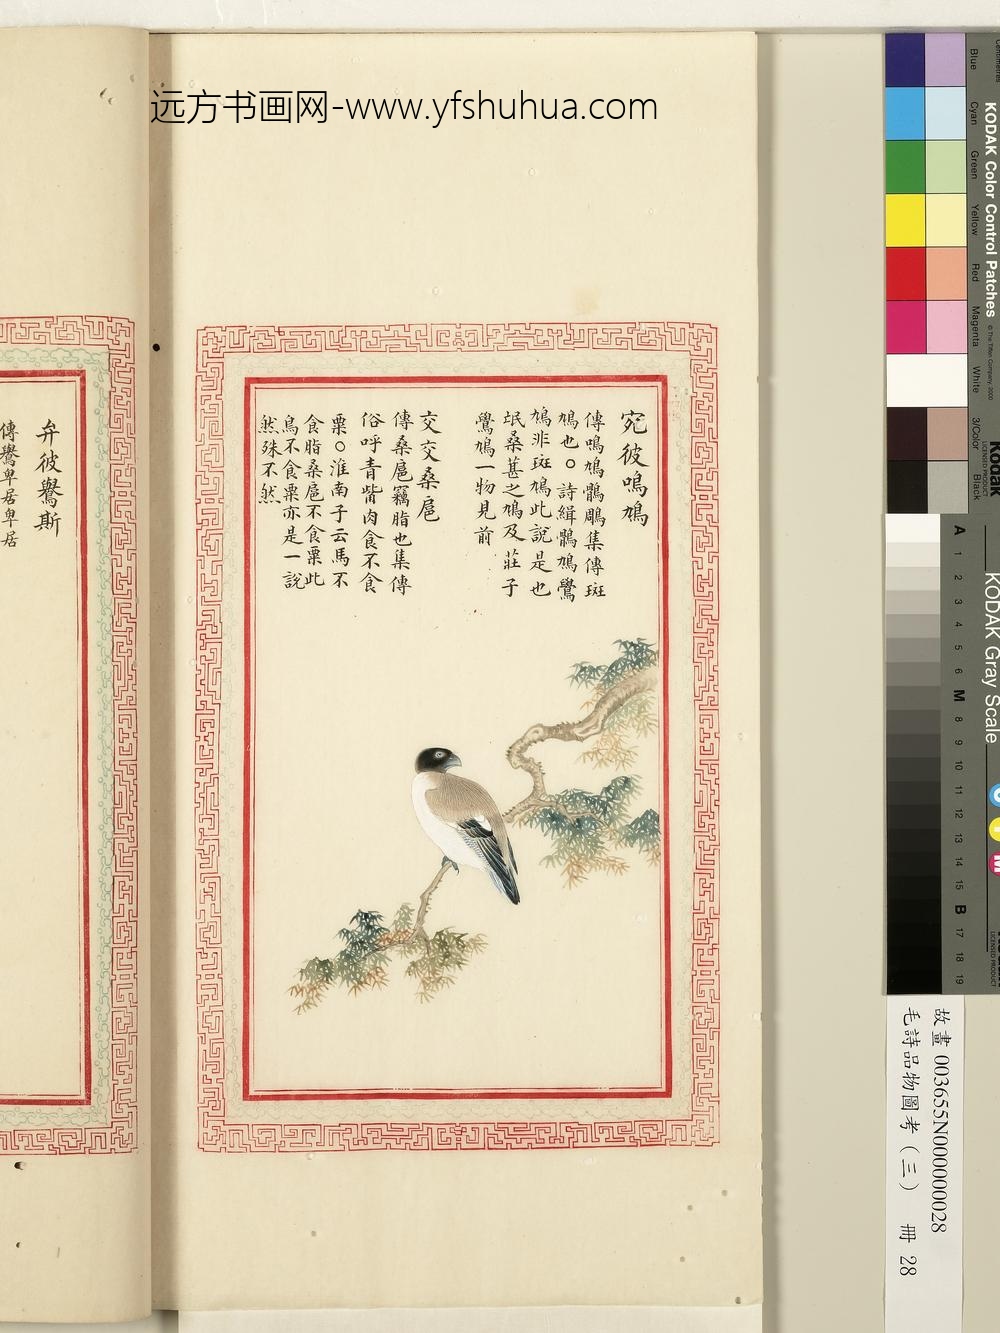 远方书画网-www.yfshuhua.com
宛彼鳴鳩
傳鳴鳩鶻鵰集傳斑
鳩也○詩緝鶻鳩鷽
鳩非斑鳩此說是也
氓桑葚之鳩及莊子
鷽鳩一物見前
交交桑扈
傳桑扈竊脂也集傳
俗呼青觜肉食不食
粟○淮南子云馬不
食脂桑扈不食粟此
鳥不食粟亦是一說
然殊不然
弁彼鸒斯
傳鸒卑居卑居
Blue
Cyan
Green
Yellow
Red
Magenta
White
3/Color
Black
Centimetres
KODAK Color Control Patches
© The Tiffen Company, 2000
Kodak
LICENSED PRODUCT
KODAK Gray Scale
A 1 2 3 4 5 6 M 8 9 10 11 12 13 14 15 B 17 18 19
C
Y
M
故畫 003655N000000028
毛詩品物圖考（三） 冊 28